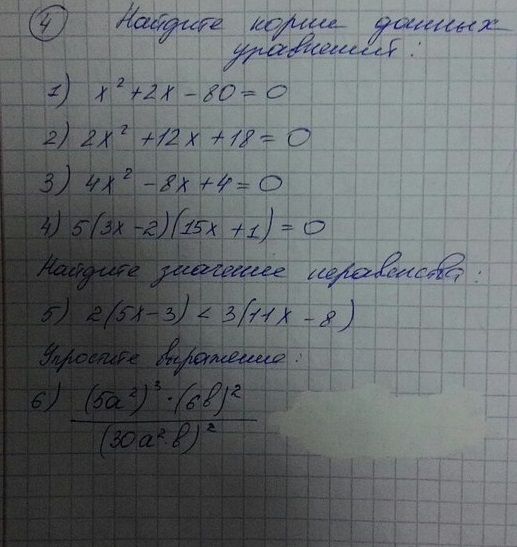 4 Найдите корни данных
уравнений:
1) x² + 2x - 80 = 0
2) 2x² + 12x + 18 = 0
3) 4x² - 8x + 4 = 0
4) 5(3x - 2)(15x + 1) = 0
Найдите значение неравенства:
5) 2(5x - 3) < 3(11x - 8)
Упростите выражение:
6) (5a²)³ · (6b)²
(30a² · b)²